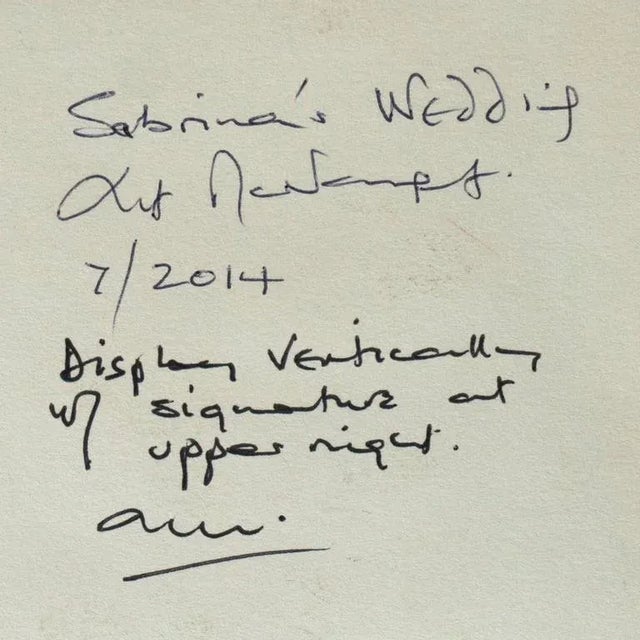 Sabrina's Wedding
Art
7/2014
Display Vertically
w/ signature at
upper right.